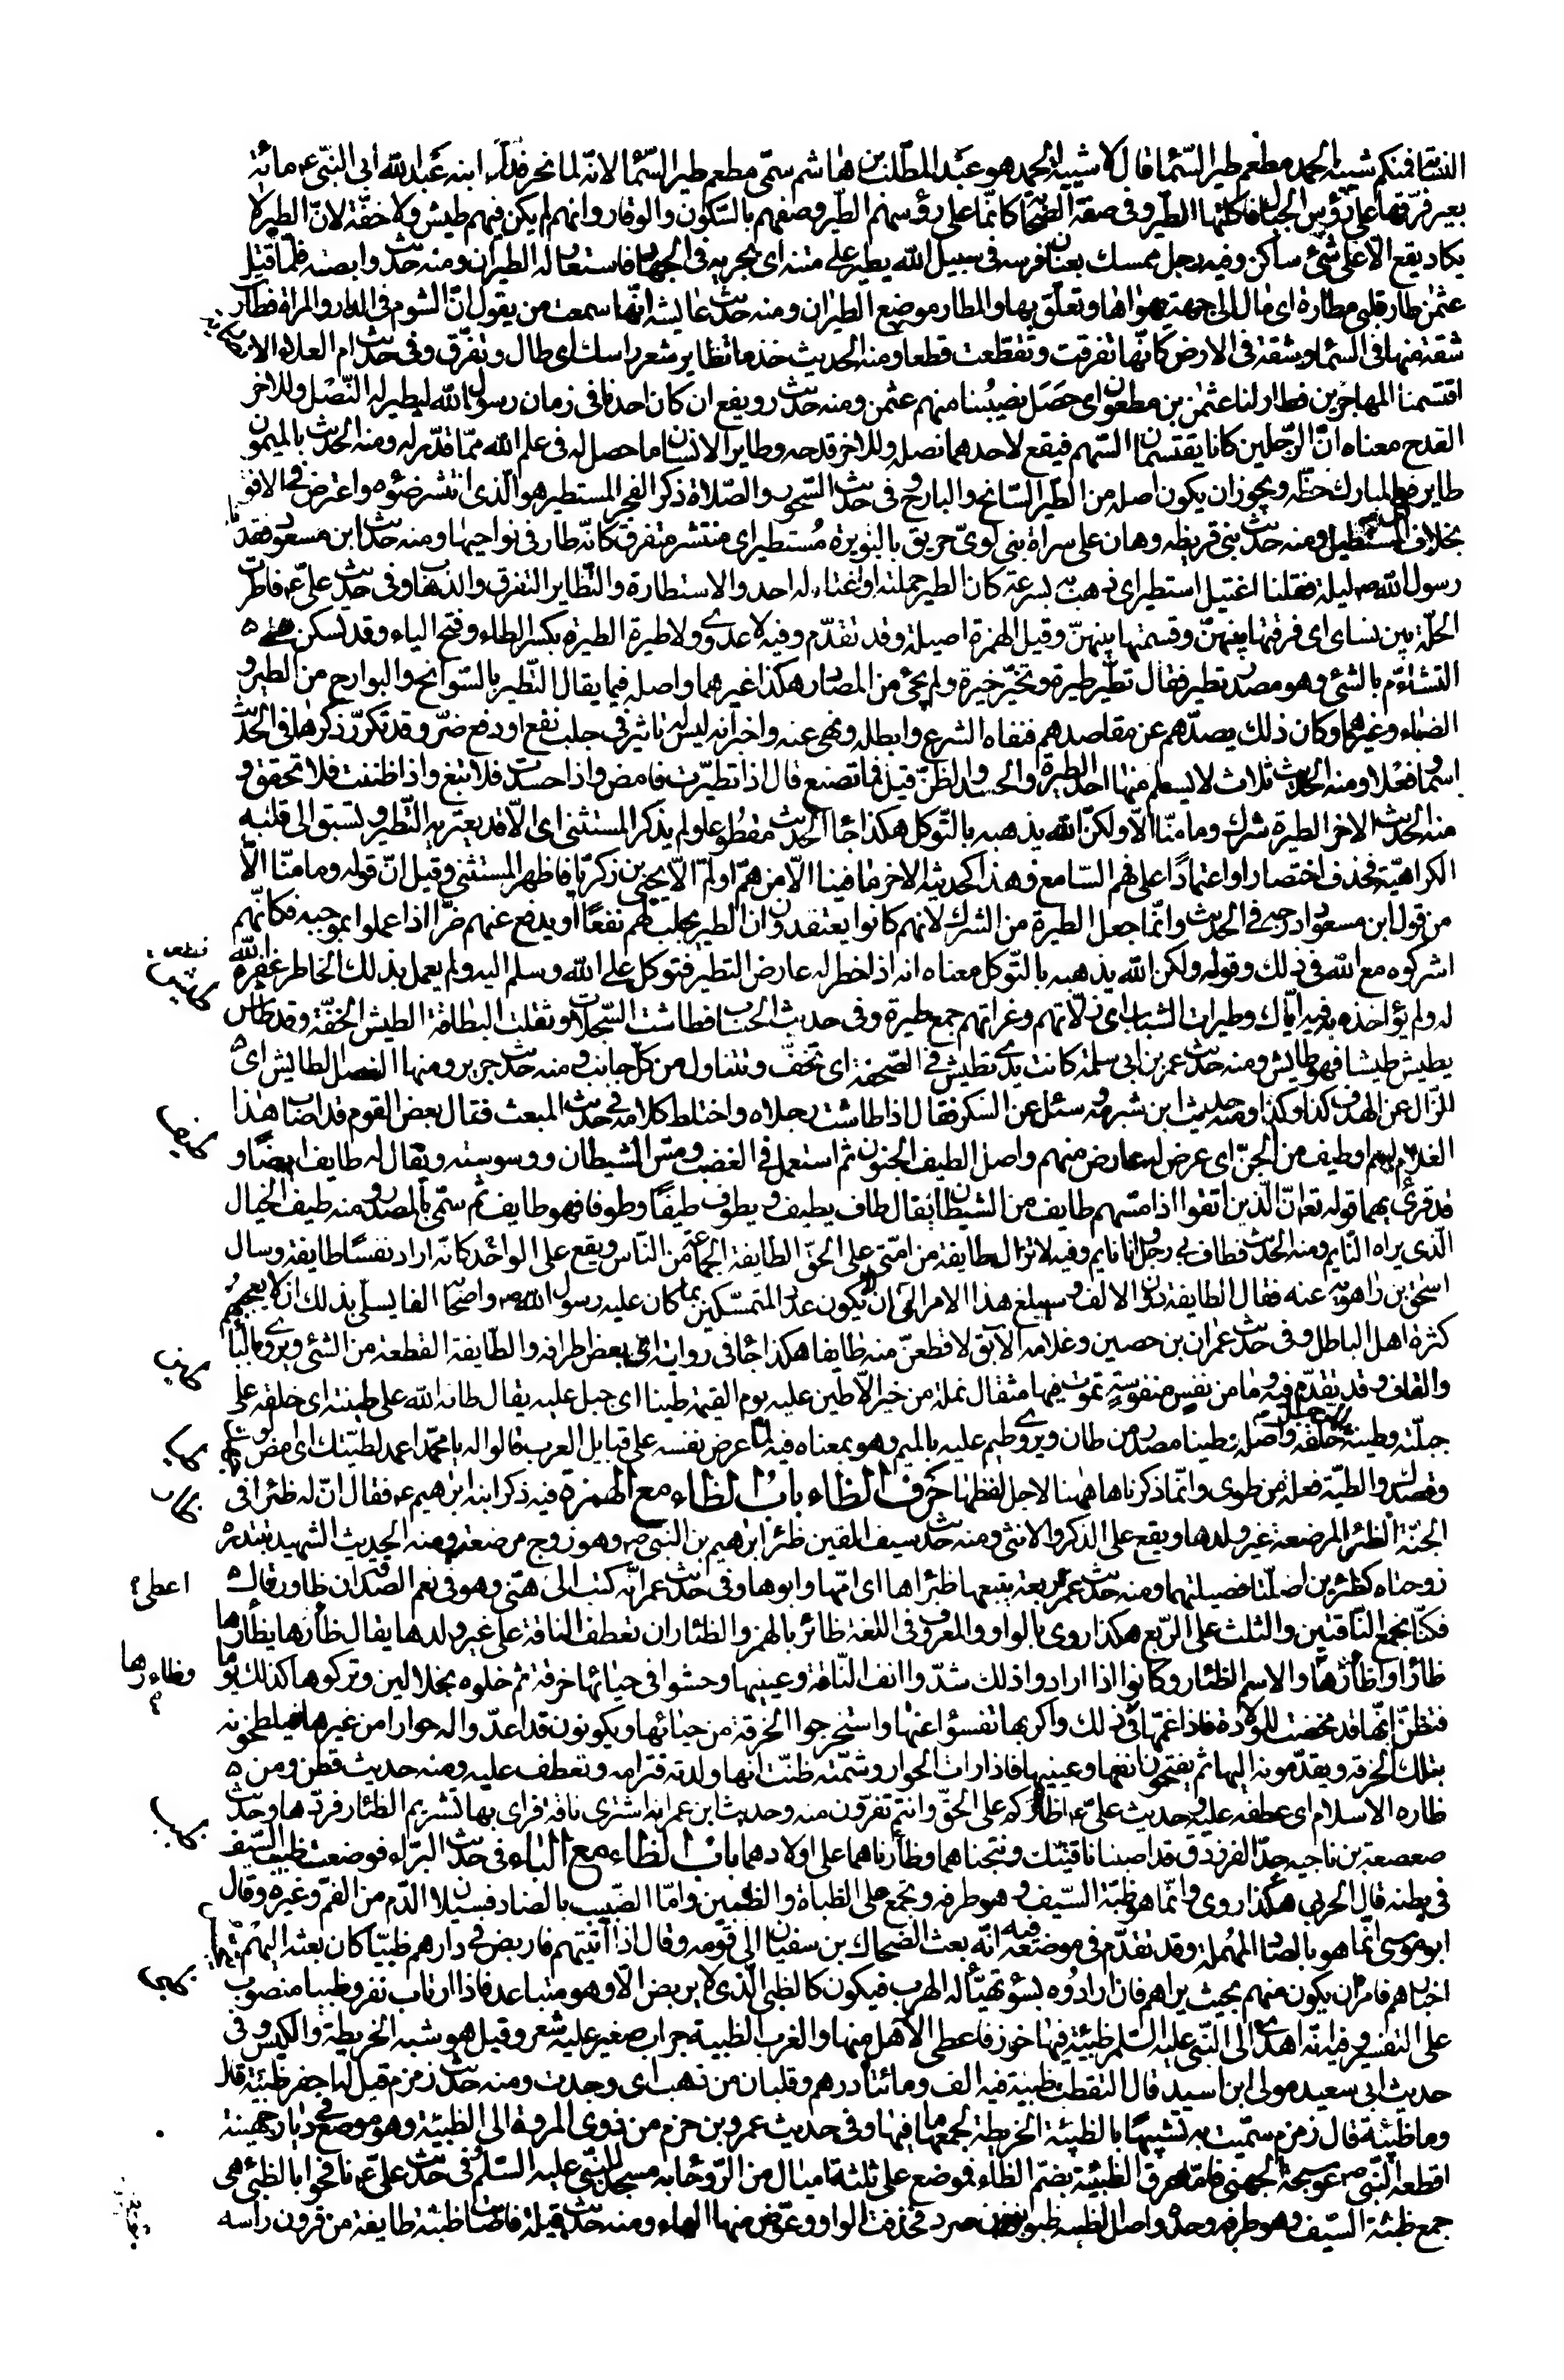 النسابة فمنكم شيبة الحمد مطعم طير السماء قال لا شيبة الحمد هو عبد المطلب بن هاشم سمّى مطعم طير السماء لانّه لما نحر فداء ابنه عبد الله ابى النبيّ ع مائة
بعير فرّقها على رؤس الجبال فاكلتها الطير وفى صفة الصحابة كانّما على رؤسهم الطير وصفهم بالسّكون والوقار وانهم لم يكن فيهم طيش ولا خفّة لانّ الطير لا
يكاد يقع الّا على شئ ساكن وفيه رجل ممسك بعنان فرسه فى سبيل الله يطير على متنه اى يجريه فى الجهاد فاستعار له الطيران ومنه حديث وابصة فلمّا قتل
عثمن طار قلبى مطاره اى مال الى جهة يهواها وتعلّق بها والمطار موضع الطيران ومنه حديث عايشة انّها سمعت من يقول انّ الشوم فى الدار والمراة فطارت
شقة منها فى السماء وشقة فى الارض كانّها تفرقت وتقطّعت قطعا ومنه الحديث خذ ما تطاير شعر راسك اى طال وتفرّق وفى حديث ام العلاء الانصارية
اقتسمنا المهاجرين فطار لنا عثمن بن مظعون اى حَصَل نصيبنا منهم عثمن ومنه حديث رويفع ان كان احدنا فى زمان رسول الله ليطير له النّصل وللاخر
القدح معناه انّ الرّجلين كانا يقتسمان السّهم فيقع لاحدهما نصله وللاخر قدحه وطاير الانسان ما حصل له فى علم الله ممّا قدّر له ومنه الحديث بالميمون
طايره اى بالمبارك حظّه ويجوز ان يكون اصله من الطير السّانح والبارح وفى حديث السّحور والصّلاة ذكر الفجر المستطير هو الّذى انتشر ضوءه واعترض فى الافق
بخلاف المستطيل ومنه حديث بنى قريظه وهان على سراة بنى لوىّ حريق بالبويرة مُستطير اى منتشر متفرق كانّه طار فى نواحيها ومنه حديث ابن مسعود فقدنا
رسول الله ص ليلة فقلنا اغتيل استطير اى ذهب به بسرعة كان الطير حملته او اغتاله احد والاستطارة والتّطاير التفرق والذهاب وفى حديث علىّ ع فاطرت
الحلّة بين نساى اى فرقتها بينهنّ وقسمتها بينهنّ وقيل الهمزة اصلية وقد تقدّم وفيه لا عدوى ولا طيرة الطيرة بكسر الطاء وفتح الياء وقد تسكن هى
التشاؤم بالشئ وهو مصدر تطير فقال تطيّر طيرة وتخيّر خيرة ولم يجئ من المصادر هكذا غيرهما واصله فيما يقال التطير بالسّوانح والبوارح من الطير و
الضباء وغيرهما وكان ذلك يصدّهم عن مقاصدهم فنفاه الشرع وابطله ونهى عنه واخبر انه ليس له تاثير فى جلب نفع او دفع ضرّ وقد تكرّر ذكرها فى الحديث
اسما وفعلا ومنه الحديث ثلاث لا يسلم منها احد الطيرة والحسد والظنّ قيل فما تصنع قال اذا تطيّرت فامض واذا حسدت فلا تبغ واذا ظننت فلا تحقق و
منه الحديث الاخر الطيرة شرك وما منّا الّا ولكنّ الله يذهبه بالتّوكل هكذا جاء الحديث مقطوعا ولم يذكر المستثنى اى الّا قد يعتريه التّطير وتسبق الى قلبه
الكراهية فحذف اختصارا واعتمادًا على فهم السّامع وهذا كحديثه الاخر ما فينا الّا من همّ او لمّ الّا يحيى بن زكريّا فاظهر المستثنى وقيل انّ قوله وما منّا الّا
من قول ابن مسعود ادرجه فى الحديث وانّما جعل الطيرة من الشرك لانهم كانوا يعتقدون ان الطير يجلب لهم نفعًا او يدفع عنهم ضرّا اذا عملوا بموجبه فكانّهم
اشركوه مع الله فى ذلك وقوله ولكن الله يذهبه بالتّوكل معناه انه اذا خطر له عارض التطير فتوكل على الله وسلم اليه ولم يعمل بذلك الخاطر غفره الله
له ولم يؤاخذه به وفيه ايّاك وطيرات الشباب اى زلّاتهم وغرّاتهم جمع طيرة وفى حديث الحساب فطاشت السّجلات وثقلت البطاقة الطيش الخفّة وقد طاش
يطيش طيشا فهو طايش ومنه حديث عمر بن ابى سلمة كانت يدى تطيش فى الصّحفة اى تخفّ وتتناول من كلّ جانب ومنه حديث جرير ومنها الفصل الطايش اى
الزّال عن الهدف كذا وكذا ومنه حديث ابن شبرمة سئل عن السّكر فقال اذا طاشت رجلاه واختلط كلامه فى حديث المبعث فقال بعض القوم قد اصاب هذا
الغلام لمم او طيف من الجنّ اى عرض له عارض منهم واصل الطيف الجنون ثم استعمل فى الغضب ومسّ الشيطان ووسوسته ويقال له طايف ايضًا و
قد قرئ بهما قوله تع انّ الّذين اتقوا اذا مسّهم طايف من الشيطان يقال طاف يطيف ويطوف طيفًا وطوفا فهو طايف ثم سمّى بالمصدر ومنه طيف الخيال
الّذى يراه النّايم ومنه الحديث فطاف بى رجل وانا نايم وفيه لا تزال طايفة من امّتى على الحقّ الطايفة الجماعة من النّاس ويقع على الواحد كانّه اراد نفسًا طايفة وسال
اسحق بن راهويه عنه فقال الطايفة دون الالف وسيبلغ هذا الامر الى ان يكون عدد المتمسّكين بما كان عليه رسول الله ص واصحابه الفا يسلّى بذلك ان لا يعجبهم
كثرة اهل الباطل وفى حديث عمران بن حصين وغلامه الآبق لاقطعنّ منه طايفا هكذا جاء فى رواية اى بعض اطرافه والطّايفة القطعة من الشئ ويروى بالباء
والقاف وقد تقدّم فيه وما من نفس منفوسة تموت فيها مثقال نملة من خير الّا طين عليه يوم القيمة طينا اى جبل عليه يقال طانه الله على طينته اى خلقه على
جبلّته وطينة الرّجل خلقه واصله وطينا مصدر من طان ويروى طيم عليه بالميم وهو بمعناه فيه لمّا عرض نفسه على قبايل العرب قالوا له يا محمّد اعمد لطيّتك اى امض لوجهك
وقصدك والطيّة فعلة من طوى وانّما ذكرناها ههنا لاجل لفظها حَرف الظاء باب الظاء مع الهمزة فيه ذكر ابنه ابرهيم ع فقال انّ له ظئرا فى
الجنّة الظئر المرضعة غير ولدها ويقع على الذكر والانثى ومنه حديث سيف القين ظئر ابرهيم بن النبى ص وهو زوج مرضعته ومنه الحديث الشهيد تبتدره
زوجتاه كظئرين اضلّتا فصيلتهما ومنه حديث عمر ربعة يتبعها ظئراها اى امّها وابوها وفى حديث عمر انّه كتب الى هنّى وهو فى نعم الصّدقة ان ظاور قال
فكنّا نجمع النّاقتين والثلث على الرّبع هكذا روى بالواو والمعروف فى اللغة ظائر بالهمز والظئار ان تعطف الناقة على غير ولدها يقال ظأرها يظأرها
ظأرا واظأرها والاسم الظئار وكانوا اذا ارادوا ذلك شدّوا انف النّاقة وعينيها وحشوا فى حيائها خرقة ثم خلوه بخلالين وتركوها كذلك يوما
فتظنّ انّها قد مخضت للولادة فاذا غمّها ذلك واكربها نفسوا عنها واستخرجوا الخرقة من حيائها ويكونون قد اعدّوا له حوارا من غيرها فيلطخونه
بتلك الخرقة ويقدّمونه اليها ثم يفتحون انفها وعينيها فاذا رات الحوار وشمّته ظنّت انها ولدته فترامه وتعطف عليه ومنه حديث قطن ومن
ظاره الاسلام اى عطفه عليه وحديث علىّ ع اظأركم على الحقّ وانتم تفرّون منه وحديث ابن عمر انه اشترى ناقة فراى بها تشريم الظئار فردّها وحديث
صعصعة بن ناجيه جدّ الفرزدق قد اصبنا ناقتيك ونتجناهما وظأرناهما على اولادهما باب الظاء مع الباء فى حديث البراء فوضعت ظبيب السّيف
فى بطنه قال الحربى هكذا روى وانّما هو ظبة السّيف وهو طرفه وتجمع على الظباة والظبين وامّا الضّبيب بالضاد فسيلان الدّم من الفم وغيره وقال
ابو موسى انّما هو بالصاد المهملة وقد تقدّم فى موضعه فيه انّه بعث الضحاك بن سفيان الى قومه وقال اذا اتيتهم فاربض فى دارهم ظبيّا كان بعثه اليهم
اخبارهم فامره ان يكون منهم بحيث يراهم فان ارادوه بسوء تهيّأ له الهرب فيكون كالظبى الّذى لا يربض الّا وهو متباعد فاذا ارتاب نفر وظبيا منصوب
على التفسير وفيه انّه اهدى الى النّبى عليه السّلم ظبية فيها خرز فاعطى الاهل منها والعزب الظبية جراب صغير عليه شعر وقيل هو شبه الخريطة والكيس وفى
حديث ابى سعيد مولى ابن اسيد قال التقطت ظبية فيه الف ومائتا درهم وقلبان من ذهب اى وجدت ومنه حديث زمزم قيل له احفر ظبية قال
وما ظبية قال زمزم سمّيت به تشبيها بالظبية الخريطة لجمعها ما فيها وفى حديث عمرو بن حزم من ذوى المروة الى الظبية وهو موضع فى ديار جهينة
اقطعه النّبى ص عوسجة الجهنى فامّا عرق الظبية بضمّ الظاء فموضع على ثلثة اميال من الرّوحا به مسجد للنّبى عليه السّلم فى حديث علىّ ع نافحوا بالظبى هى
جمع ظبة السّيف وهو طرفه وحدّه واصل الظبة ظبو بوزن صرد فحذفت الواو وعوّض منها الهاء ومنه حديث قيلة فاصابت ظبته طايفة من قرون راسه
اعطى
وظاءرها